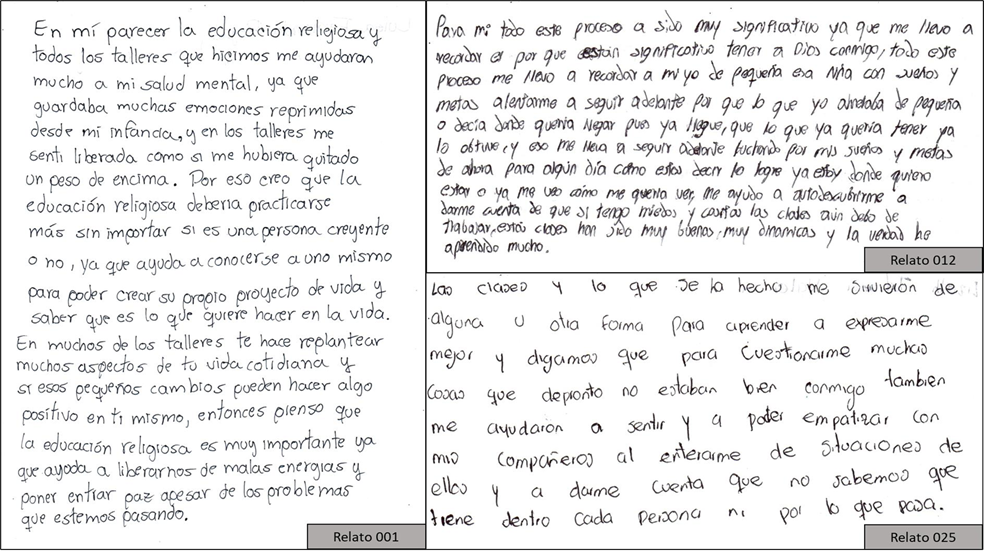 En mí parecer la educación religiosa y
todos los talleres que hicimos me ayudaron
mucho a mi salud mental, ya que
guardaba muchas emociones reprimidas
desde mi infancia, y en los talleres me
senti liberada como si me hubiera quitado
un peso de encima. Por eso creo que la
educación religiosa deberia practicarse
más sin importar si es una persona creyente
o no, ya que ayuda a conocerse a uno mismo
para poder crear su propio proyecto de vida y
saber que es lo que quiere hacer en la vida.
En muchos de los talleres te hace replantear
muchos aspectos de tu vida cotidiana y
si esos pequeños cambios pueden hacer algo
positivo en ti mismo, entonces pienso que
la educación religiosa es muy importante ya
que ayuda a liberarnos de malas energias y
poner entrar paz apesar de los problemas
que estemos pasando.
Relato 001
Para mi todo este proceso a sido muy significativo ya que me llevo a
recordar el por que es tan significativo tener a Dios conmigo, todo este
proceso me llevo a recordar a mi yo de pequeña esa niña con sueños y
metas alentarme a seguir adelante por que lo que yo anhelaba de pequeña
o decía donde queria llegar pues ya llegue, que lo que ya queria tener ya
lo obtuve, y eso me lleva a seguir adelante luchando por mis sueños y metas
de ahora para algún día como estos decir lo logre ya estoy donde quiero
estar o ya me veo cómo me queria ver, me ayudo a autodescubrirme a
darme cuenta de que si tengo miedos, y las clases aún debo de
trabajar, estás clases han sido muy buenas, muy dinamicas y la verdad he
aprendido mucho.
Relato 012
Las clases y lo que se la hecho me sirvieron de
alguna u otra forma para aprender a expresarme
mejor y digamos que para cuestionarme muchas
cosas que depronto no estaban bien conmigo tambien
me ayudaron a sentir y a poder empatizar con
mis compañeros al enterarme de situaciones de
ellos y a darme cuenta que no sabemos que
tiene dentro cada persona ni por lo que pasa.
Relato 025